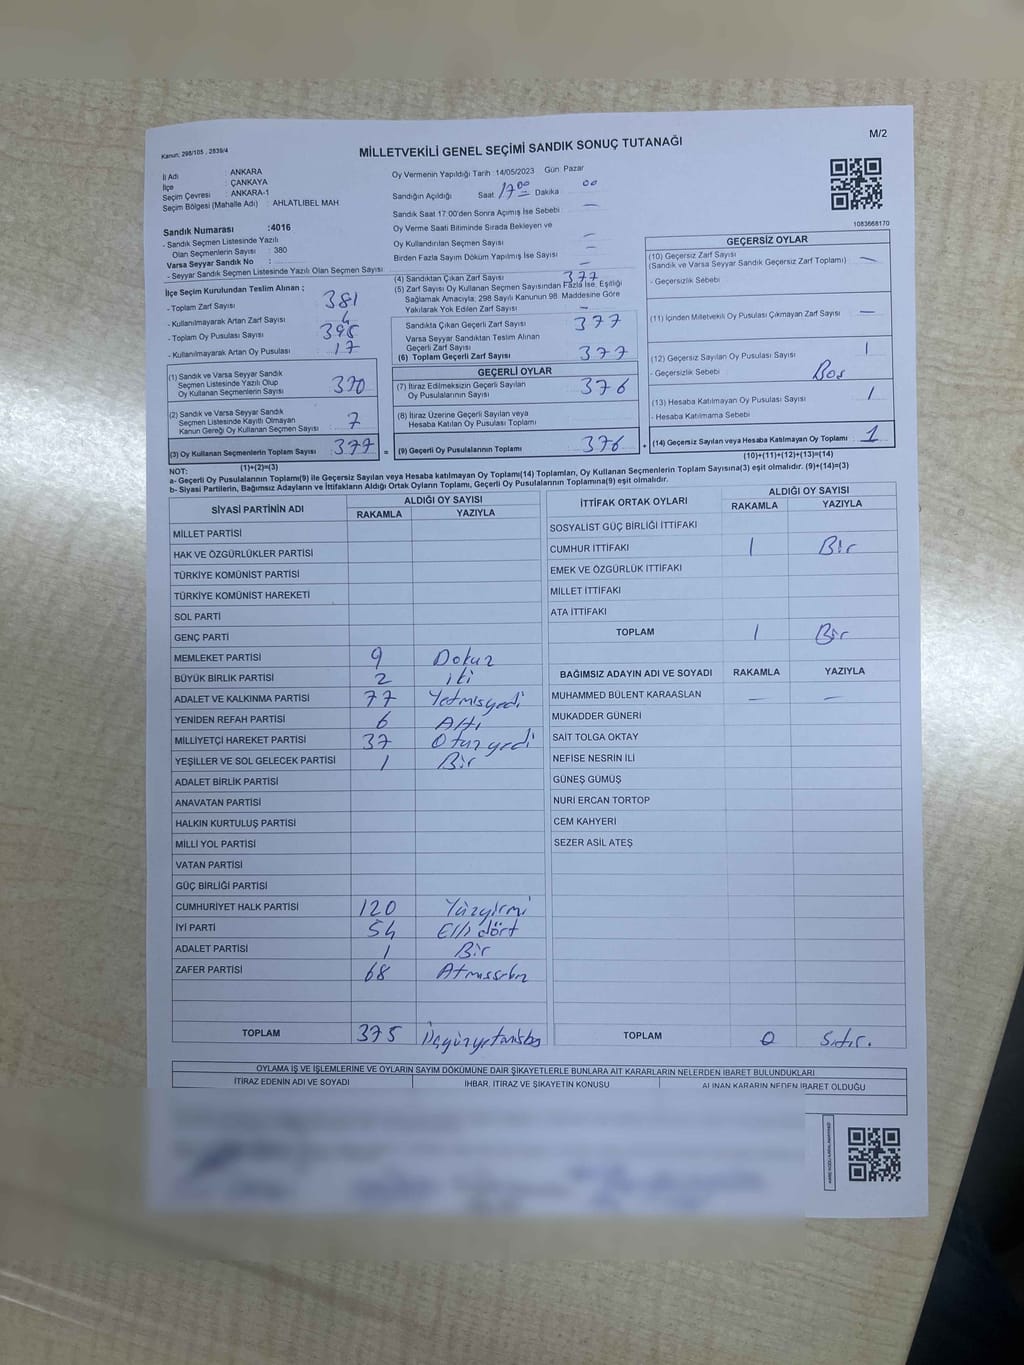 Kanun: 298/105 , 2839/4
MİLLETVEKİLİ GENEL SEÇİMİ SANDIK SONUÇ TUTANAĞI
M/2
İl Adı : ANKARA
İlçe : ÇANKAYA
Seçim Çevresi : ANKARA-1
Seçim Bölgesi (Mahalle Adı) : AHLATLIBEL MAH
Sandık Numarası :4016
- Sandık Seçmen Listesinde Yazılı
Olan Seçmenlerin Sayısı : 380
Varsa Seyyar Sandık No :
- Seyyar Sandık Seçmen Listesinde Yazılı Olan Seçmen Sayısı
Oy Vermenin Yapıldığı Tarih :14/05/2023 Gün Pazar
Sandığın Açıldığı Saat 17 00 Dakika 00
Sandık Saat 17:00'den Sonra Açımış İse Sebebi —
Oy Verme Saati Bitiminde Sırada Bekleyen ve
Oy Kullandırılan Seçmen Sayısı —
Birden Fazla Sayım Döküm Yapılmış İse Sayısı —
1083668170
İlçe Seçim Kurulundan Teslim Alınan ;
- Toplam Zarf Sayısı 381
- Kullanılmayarak Artan Zarf Sayısı 4
- Toplam Oy Pusulası Sayısı 395
- Kullanılmayarak Artan Oy Pusulası 17
(1) Sandık ve Varsa Seyyar Sandık
Seçmen Listesinde Yazılı Olup
Oy Kullanan Seçmenlerin Sayısı 370
(2) Sandık ve Varsa Seyyar Sandık
Seçmen Listesinde Kayıtlı Olmayan
Kanun Gereği Oy Kullanan Seçmen Sayısı 7
(3) Oy Kullanan Seçmenlerin Toplam Sayısı 377 =
(4) Sandıktan Çıkan Zarf Sayısı 377
(5) Zarf Sayısı Oy Kullanan Seçmen Sayısından Fazla İse, Eşitliği
Sağlamak Amacıyla; 298 Sayılı Kanunun 98. Maddesine Göre
Yakılarak Yok Edilen Zarf Sayısı
Sandıkta Çıkan Geçerli Zarf Sayısı 377
Varsa Seyyar Sandıktan Teslim Alınan
Geçerli Zarf Sayısı
(6) Toplam Geçerli Zarf Sayısı 377
GEÇERLİ OYLAR
(7) İtiraz Edilmeksizin Geçerli Sayılan
Oy Pusulalarının Sayısı 376
(8) İtiraz Üzerine Geçerli Sayılan veya
Hesaba Katılan Oy Pusulası Toplamı
(9) Geçerli Oy Pusulalarının Toplamı 376 +
GEÇERSİZ OYLAR
(10) Geçersiz Zarf Sayısı
(Sandık ve Varsa Seyyar Sandık Geçersiz Zarf Toplamı) —
- Geçersizlik Sebebi
(11) İçinden Milletvekili Oy Pusulası Çıkmayan Zarf Sayısı —
(12) Geçersiz Sayılan Oy Pusulası Sayısı 1
- Geçersizlik Sebebi Boş
(13) Hesaba Katılmayan Oy Pusulası Sayısı 1
- Hesaba Katılmama Sebebi
(14) Geçersiz Sayılan veya Hesaba Katılmayan Oy Toplamı 1
(10)+(11)+(12)+(13)=(14)
NOT: (1)+(2)=(3)
a- Geçerli Oy Pusulalarının Toplamı(9) ile Geçersiz Sayılan veya Hesaba katılmayan Oy Toplamı(14) Toplamları, Oy Kullanan Seçmenlerin Toplam Sayısına(3) eşit olmalıdır. (9)+(14)=(3)
b- Siyasi Partilerin, Bağımsız Adayların ve İttifakların Aldığı Ortak Oyların Toplamı, Geçerli Oy Pusulalarının Toplamına(9) eşit olmalıdır.
SİYASİ PARTİNİN ADI ALDIĞI OY SAYISI
RAKAMLA YAZIYLA
MİLLET PARTİSİ
HAK VE ÖZGÜRLÜKLER PARTİSİ
TÜRKİYE KOMÜNİST PARTİSİ
TÜRKİYE KOMÜNİST HAREKETİ
SOL PARTİ
GENÇ PARTİ
MEMLEKET PARTİSİ 9 Dokuz
BÜYÜK BİRLİK PARTİSİ 2 iki
ADALET VE KALKINMA PARTİSİ 77 Yetmişyedi
YENİDEN REFAH PARTİSİ 6 Altı
MİLLİYETÇİ HAREKET PARTİSİ 37 Otuzyedi
YEŞİLLER VE SOL GELECEK PARTİSİ 1 Bir
ADALET BİRLİK PARTİSİ
ANAVATAN PARTİSİ
HALKIN KURTULUŞ PARTİSİ
MİLLİ YOL PARTİSİ
VATAN PARTİSİ
GÜÇ BİRLİĞİ PARTİSİ
CUMHURİYET HALK PARTİSİ 120 Yüzyirmi
İYİ PARTİ 54 Elli dört
ADALET PARTİSİ 1 Bir
ZAFER PARTİSİ 68 Atmışsekiz
TOPLAM 375 Üçyüzyetmişbeş
İTTİFAK ORTAK OYLARI ALDIĞI OY SAYISI
RAKAMLA YAZIYLA
SOSYALİST GÜÇ BİRLİĞİ İTTİFAKI
CUMHUR İTTİFAKI 1 Bir
EMEK VE ÖZGÜRLÜK İTTİFAKI
MİLLET İTTİFAKI
ATA İTTİFAKI
TOPLAM 1 Bir
BAĞIMSIZ ADAYIN ADI VE SOYADI RAKAMLA YAZIYLA
MUHAMMED BÜLENT KARAASLAN — —
MUKADDER GÜNERİ
SAİT TOLGA OKTAY
NEFİSE NESRİN İLİ
GÜNEŞ GÜMÜŞ
NURİ ERCAN TORTOP
CEM KAHYERİ
SEZER ASİL ATEŞ
TOPLAM 0 Sıfır.
OYLAMA İŞ VE İŞLEMLERİNE VE OYLARIN SAYIM DÖKÜMÜNE DAİR ŞİKAYETLERLE BUNLARA AİT KARARLARIN NELERDEN İBARET BULUNDUKLARI
İTİRAZ EDENİN ADI VE SOYADI İHBAR, İTİRAZ VE ŞİKAYETİN KONUSU ALINAN KARARIN NEDEN İBARET OLDUĞU